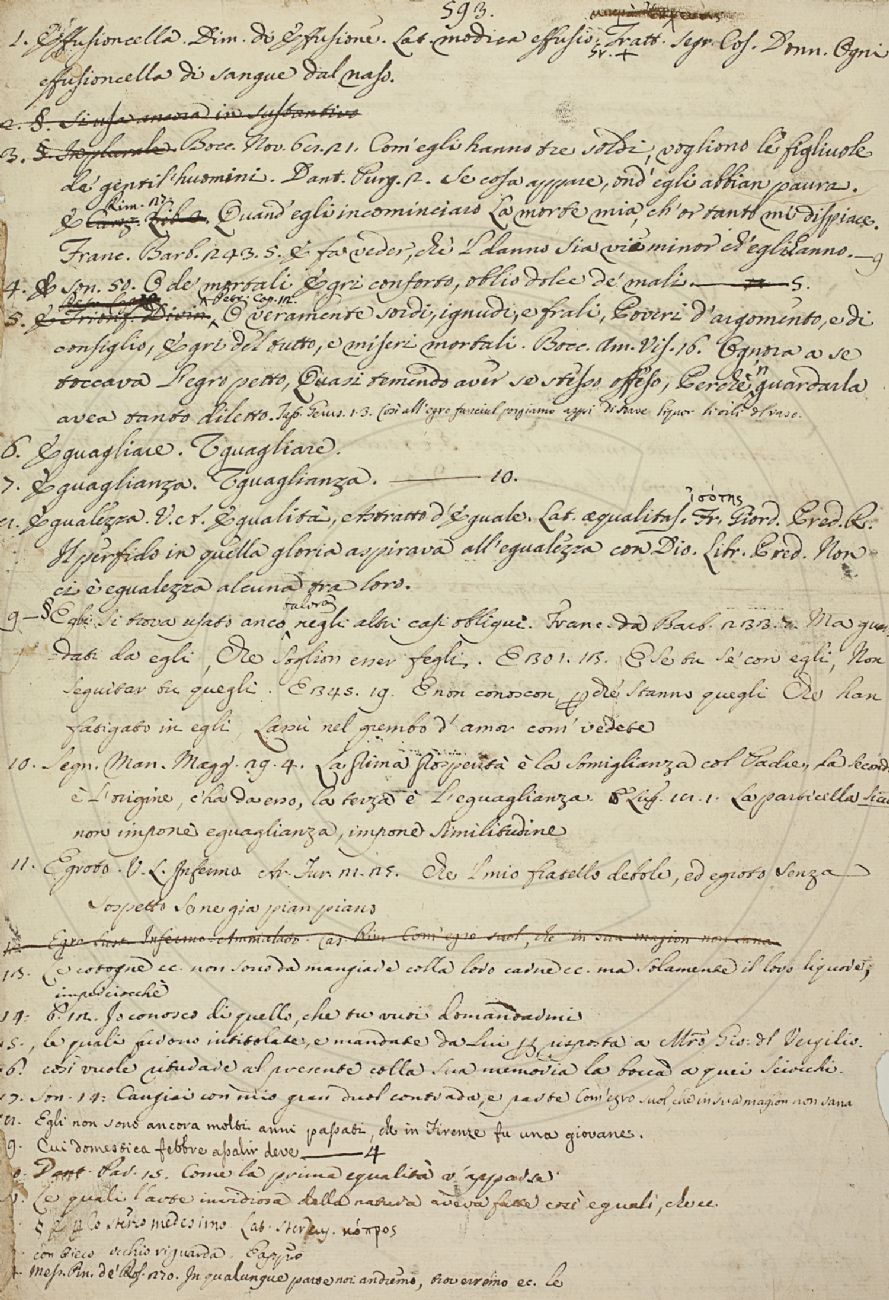 593.
1. Effusioncella. Dim. di Effusione. Lat. modica effusio. Tratt. segr. Cos. Donn. Ogni
effusioncella di sangue dal naso.
2. §. Si usa ancora in sustantivo
3. § In plurale. Bocc. Nov. 60. 21. Com' egli hanno tre soldi, vogliono le figliuole
de' gentil' huomini. Dant. Purg. 12. Se cosa appare, ond' egli abbian paura.
Rim. 12.
E Canz. Quand' egli incominciaro La morte mia, ch' or tanto mi dispiace.
Franc. Barb. 243. 5. E fa veder, che 'l danno sia vie minor ch' egli hanno. — 9
4. E son. 50. O de' mortali Egri conforto, oblio dolce de' mali. — 5.
Petr. cap. 12.
5. E Trionf. Divin. O veramente sordi, ignudi, e frali, Poveri d' argomento, e di
consiglio, Egri del tutto, e miseri mortali. Bocc. Am. Vis. 16. Ognora a se
toccava L' egro petto, Quasi temendo aver se stesso offeso, Perchè 'n guardarla
avea tanto diletto. Tass. Gerus. 1. 3. Così all' egro fanciul porgiamo aspri Di soave liquor gli orli del vaso.
6. Eguagliare. Uguagliare.
7. Eguaglianza. Uguaglianza. — 10.
ἰσότης
8. Egualezza. V. A. Egualità, Astratto d' Eguale. Lat. æqualitas. Fr. Giord. Pred. R.
Il perfido in quella gloria aspirava all' egualezza con Dio. Libr. Pred. Non
ci è egualezza alcuna tra loro.
talora
9 — § Egli si trova usato anco negli altri casi obliqui. Franc. da Barb. 233. Ma guar
dati da egli, Che soglion esser fegli. E 301. 13. E se tu se' con egli, Non
seguitar tu quegli. E 345. 19. E non conoscon, perchè stanno quegli Che han
fatigato in egli, Lassù nel grembo d' amor com' vedete
10. Segn. Man. Magg. 29. 4. La prima prosperità è la somiglianza col Padre, la second
è l' origine, c' ha da esso, la terza è l' eguaglianza. E Lugl. 1. La particella sicu
non impone eguaglianza, impone similitudine
11. Egroto. V. L. Infermo Ar. Fur. Che 'l mio fratello debole, ed egroto Senza
sospetto se ne già pian piano
12. Egro Sust. Infermo. Ammalato. Cas. Rim. Com' egro suol, che in sua magion non sana
13. Le cotogne ec. non sono da mangiare colla loro carne ec. ma solamente il loro liquore,
imperciocchè
14. 6. 12. Io conosco di quello, che tu vuoi domandarmi
15. , le quali furono intitolate, e mandate da lui per risposta a Mro. Gio. del Vergilio.
16. così vuole riturare al presente colla sua memoria la bocca a quei sciocchi.
17. Son. 14: Cangiai con mio gran duol contrada, e parte Com' egro suol, che in sua magion non sana
18. Egli non sono ancora molti anni passati, che in Firenze fu una giovane.
9. Cui domestica febbre assalir deve — 4
0. Dant. Par. 15. Come la prima egualità v' apparse
Le quali l' arte invidiosa della natura aveva fatte così eguali, che ec.
§ E p. lo stesso medesimo Lat. stercus. κόπρος
con bieco occhio riguarda.
Mess. Cin. de' Ros. 270. In qualunque parte noi andremo, troverremo ec. le